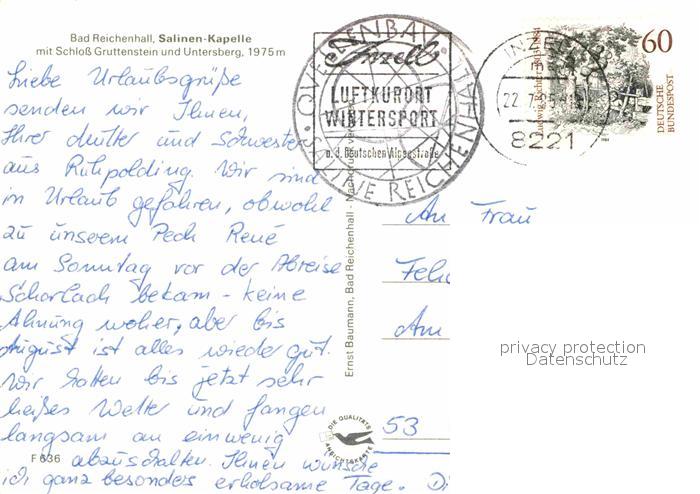 Bad Reichenhall, Salinen-Kapelle
mit Schloß Gruttenstein und Untersberg, 1975 m
Liebe Urlaubsgrüße
senden wir Ihnen,
Ihrer Mutter und Schwester
aus Ruhpolding. Wir sind
in Urlaub gefahren, obwohl
zu unserem Pech René
am Sonntag vor der Abreise
Scharlach bekam - keine
Ahnung woher, aber bis
August ist alles wieder gut.
Wir hatten bis jetzt sehr
heißes Wetter und fangen
langsam an ein wenig
F 636 abzuschalten. Ihnen wünsche
ich ganz besonders erholsame Tage. Di
Ernst Baumann, Bad Reichenhall - Nachdruck
DIE QUALITÄTS
ANSICHTSKARTE
QUELLENBAU
SALINE REICHENHALL
Inzell
LUFTKURORT
WINTERSPORT
a. d. Deutschen Alpenstraße
INZELL
22.7.
8221
Ludwig Richter 1803-1884
60
DEUTSCHE
BUNDESPOST
An Frau
Am
53
privacy protection
Datenschutz